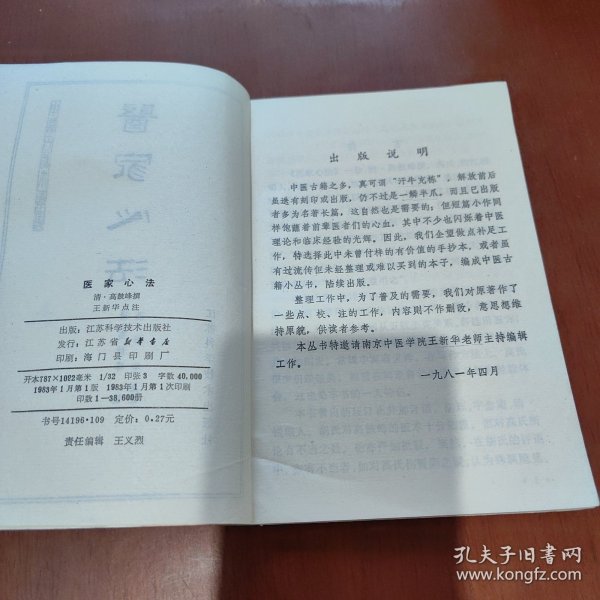 医家心法
清·高鼓峰撰
王新华点注
出版：江苏科学技术出版社
发行：江苏省新华书店
印刷：海门县印刷厂
开本787×1092毫米 1/32 印张3 字数40,000
1983年1月第1版 1983年1月第1次印刷
印数1—38,600册
书号14196·109 定价：0.27元
责任编辑 王义烈
出版说明
中医古籍之多，真可谓“汗牛充栋”，解放前后
虽迭有刻印或出版，仍不过是一鳞半爪。而且已出版
者多为名著长篇，这自然也是需要的；但短篇小作同
样饱蘸着前辈医者们的心血，其中不少也闪烁着中医
理论和临床经验的光辉。因此，我们企望做点补足工
作，特选择此中未曾付梓的有价值的手抄本，或者虽
有过流传但未经整理或难以买到的本子，编成中医古
籍小丛书，陆续出版。
整理工作中，为了普及的需要，我们对原著作了
一些点、校、注的工作，内容则不作删改，意思想维
持原貌，供读者参考。
本丛书特邀请南京中医学院王新华老师主持编辑
工作。
一九八一年四月
孔夫子旧书网
www.kongfz.com